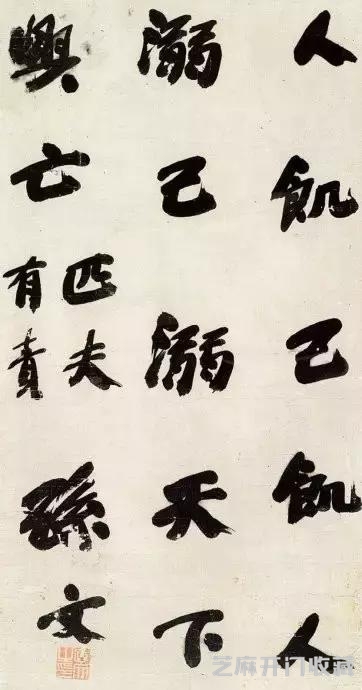 人飢己飢人
溺己溺天下
興亡匹夫有責孫文
芝麻开门收藏